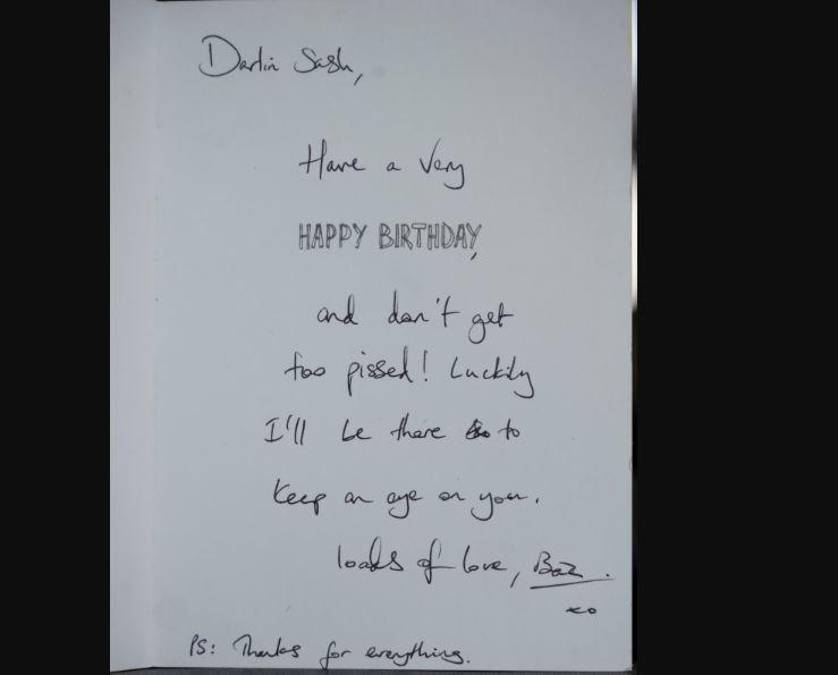 Darlin Sash,
Have a Very
HAPPY BIRTHDAY,
and don't get
too pissed! Luckily
I'll be there to
keep an eye on you.
loads of love, Baz.
xo
PS: Thanks for everything.